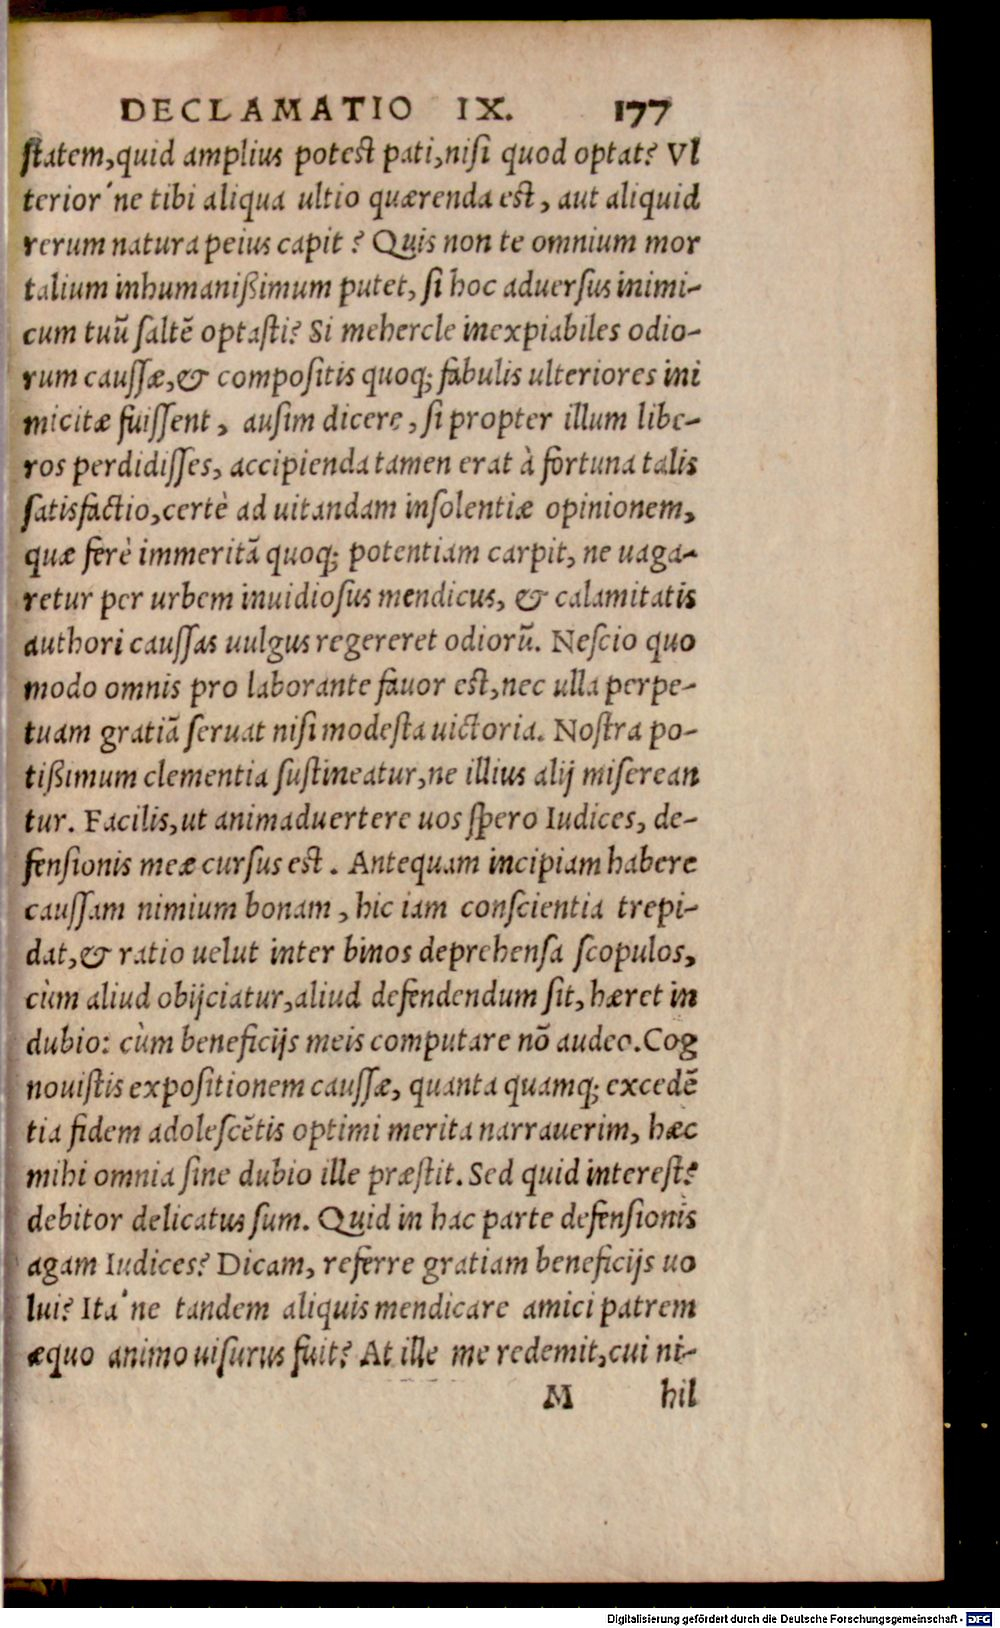 DECLAMATIO IX. 177
ſtatem,quid amplius poteſt pati,niſi quod optat? Vl
terior'ne tibi aliqua ultio quærenda eſt, aut aliquid
rerum natura peius capit? Quis non te omnium mor
talium inhumanißimum putet, ſi hoc aduerſus inimi-
cum tuū ſaltē optaſti? Si mehercle inexpiabiles odio-
rum cauſſæ,& compoſitis quoq; fabulis ulteriores ini
micitæ fuiſſent, auſim dicere, ſi propter illum libe-
ros perdidiſſes, accipienda tamen erat à fortuna talis
ſatisfactio,certè ad uitandam inſolentiæ opinionem,
quæ ferè immeritā quoq; potentiam carpit, ne uaga-
retur per urbem inuidioſus mendicus, & calamitatis
authori cauſſas uulgus regereret odiorū. Neſcio quo
modo omnis pro laborante fauor eſt,nec ulla perpe-
tuam gratiā ſeruat niſi modeſta uictoria. Noſtra po-
tißimum clementia ſuſtineatur,ne illius alij miſerean
tur. Facilis,ut animaduertere uos ſpero Iudices, de-
fenſionis meæ curſus eſt. Antequam incipiam habere
cauſſam nimium bonam, hic iam conſcientia trepi-
dat,& ratio uelut inter binos deprehenſa ſcopulos,
cùm aliud obijciatur,aliud defendendum ſit, hæret in
dubio: cùm beneficijs meis computare nō audeo.Cog
nouiſtis expoſitionem cauſſæ, quanta quamq; excedē
tia fidem adoleſcētis optimi merita narrauerim, hæc
mihi omnia ſine dubio ille præſtit. Sed quid intereſt?
debitor delicatus ſum. Quid in hac parte defenſionis
agam Iudices? Dicam, referre gratiam beneficijs uo
lui? Ita'ne tandem aliquis mendicare amici patrem
æquo animo uiſurus fuit? At ille me redemit,cui ni-
M hil
Digitalisierung gefördert durch die Deutsche Forschungsgemeinschaft - DFG